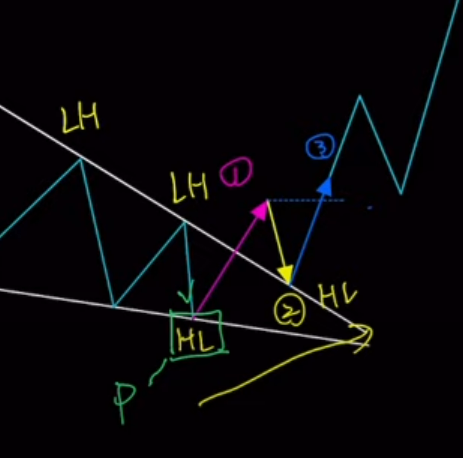 LH
LH
①
③
HL
②
HL
P